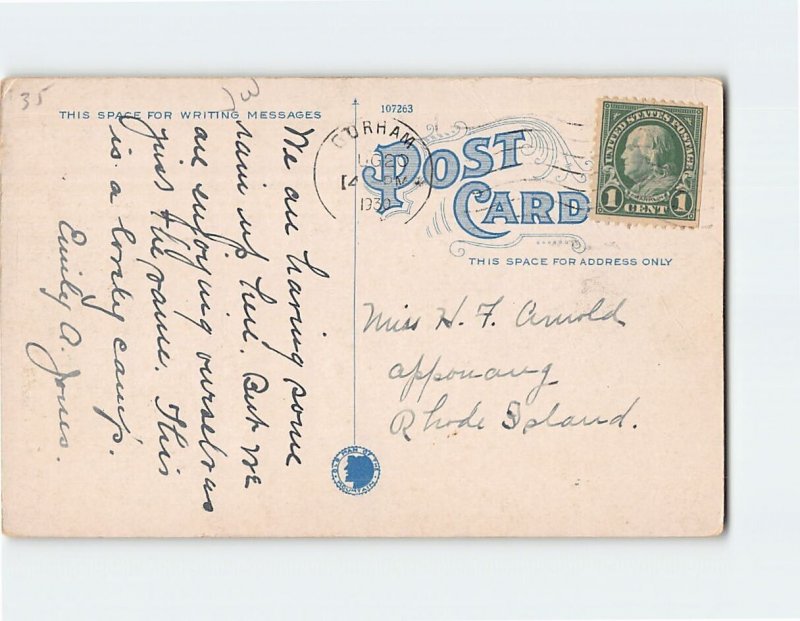 35
3
THIS SPACE FOR WRITING MESSAGES
We are having some
rain up here. But we
are enjoying ourselves
just the same. This
is a lovely camp.
Emily A. Jones.
107263
DURHAM
20
PM
193
POST
CARD
THIS SPACE FOR ADDRESS ONLY
UNITED STATES POSTAGE
FRANKLIN
1 CENT 1
Miss H. F. Arnold
Apponaug
Rhode Island.
OLD MAN OF THE
MOUNTAIN